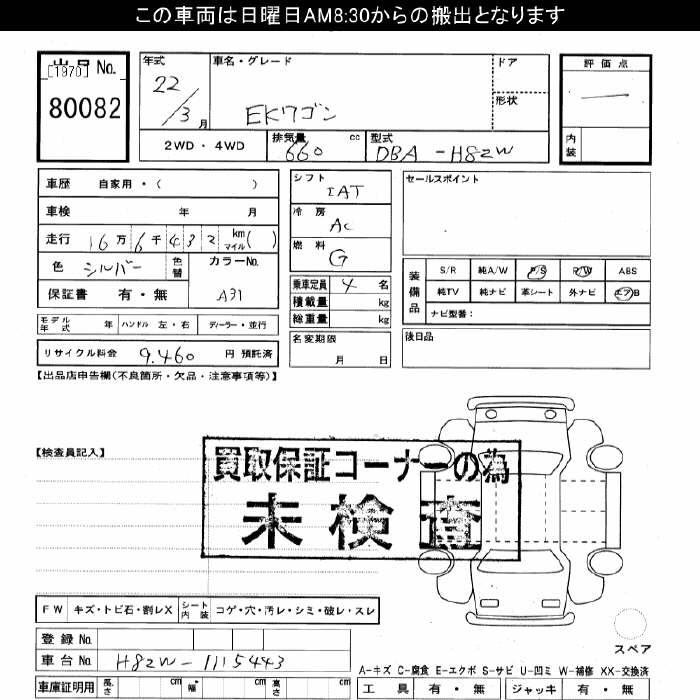 この車両は日曜日AM8:30からの搬出となります
出品 No.
[1970]
80082
年式
22/3月
車名・グレード
EKワゴン
ドア
形状
評価点
—
内装
2WD・4WD
排気量 660 cc
型式 DBA-H82W
車歴 自家用・( )
車検 年 月
走行 16万6千432 km マイル( )
色 シルバー 色替
カラーNo. A31
保証書 有・無
シフト IAT
冷房 AC
燃料 G
乗車定員 4 名
積載量 kg
総重量 kg
セールスポイント
装備品
S/R 純A/W P/S P/W ABS
純TV 純ナビ 革シート 外ナビ エアB
ナビ型番:
モデル年式 年 ハンドル 左・右 ディーラー・並行
名変期限 月 日
後日品
リサイクル料金 9.460 円 預託済
【出品店申告欄(不良箇所・欠品・注意事項等)】
【検査員記入】
買取保証コーナーの為
未検査
FW キズ・トビ石・割レX シート内装 コゲ・穴・汚レ・シミ・破レ・スレ
スペア
登録 No.
車台 No. H82W-1115443
A-キズ C-腐食 E-エクボ S-サビ U-凹ミ W-補修 XX-交換済
車庫証明用 長さ cm 幅 cm 高さ cm
工具 有・無 ジャッキ 有・無